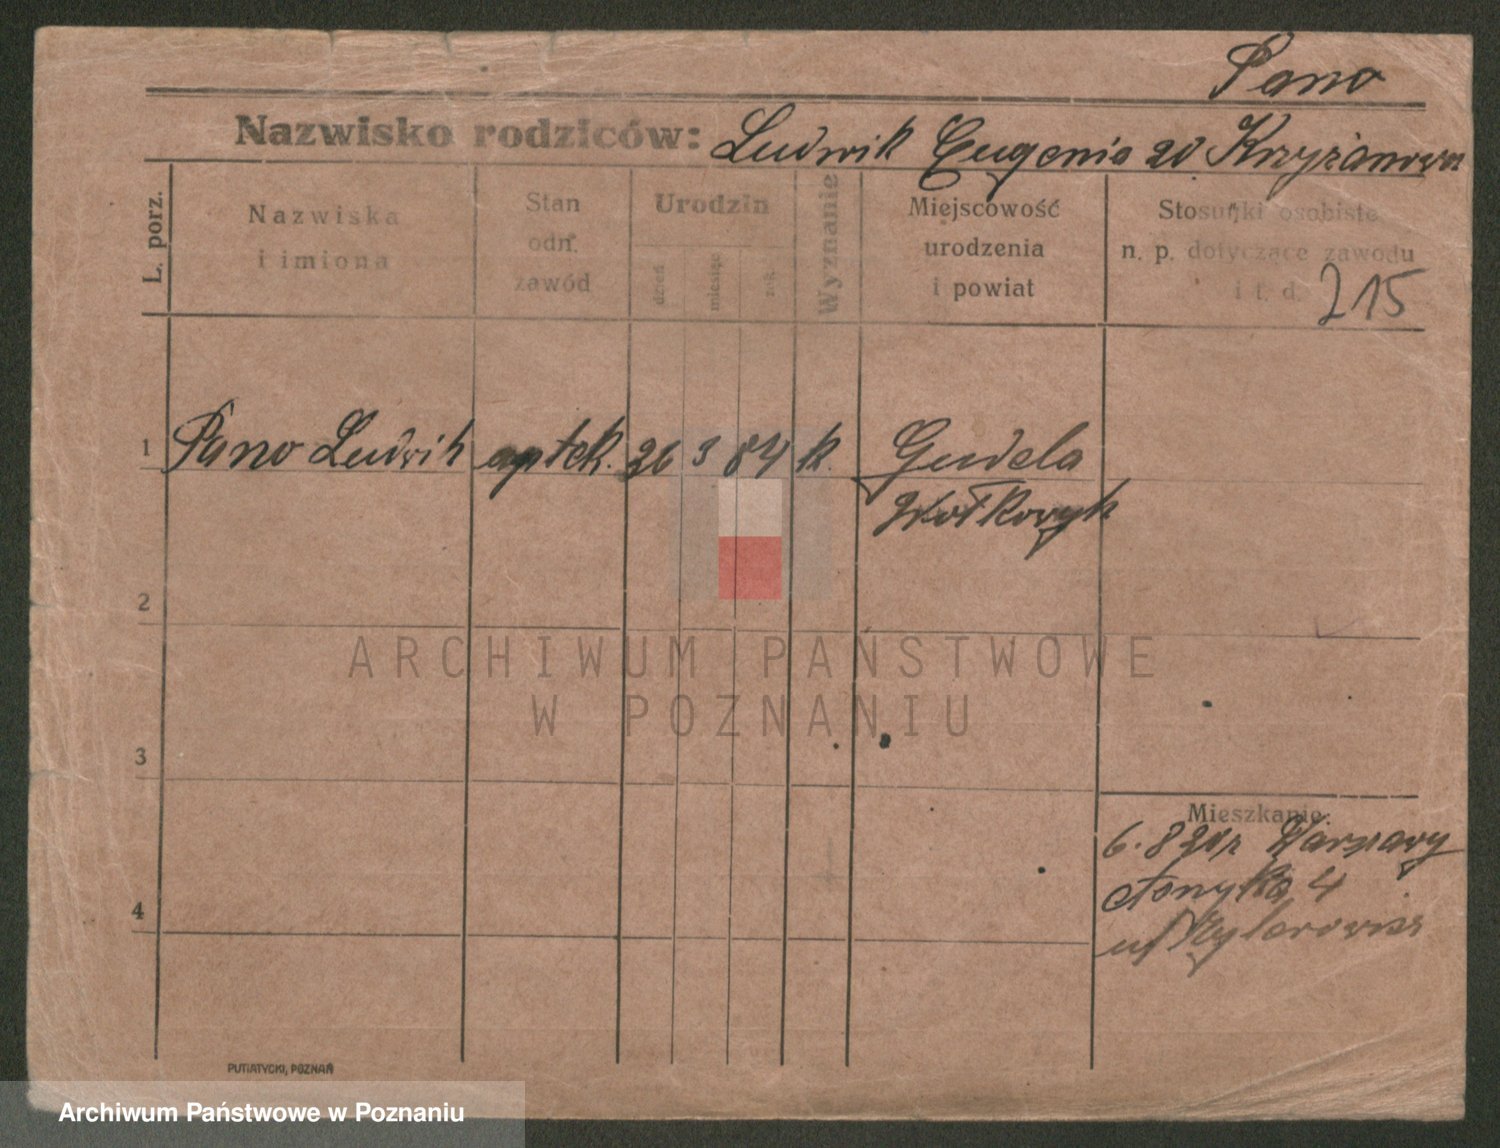 Pano
Nazwisko rodziców: Ludwik Eugenia zd Krzyżanowsk
L. porz.
Nazwiska i imiona
Stan odn. zawód
Urodzin
dzień
miesiąc
rok
Wyznanie
Miejscowość urodzenia i powiat
Stosunki osobiste n. p. dotyczące zawodu i t. d.
215
1 Pano Ludwik aptek. 26 3 84 k. Gudela
Wołkowysk
2
3
4
ARCHIWUM PAŃSTWOWE
W POZNANIU
Mieszkanie:
6. 8 Warszawy
4
ul
PUTIATYCKI, POZNAŃ
Archiwum Państwowe w Poznaniu